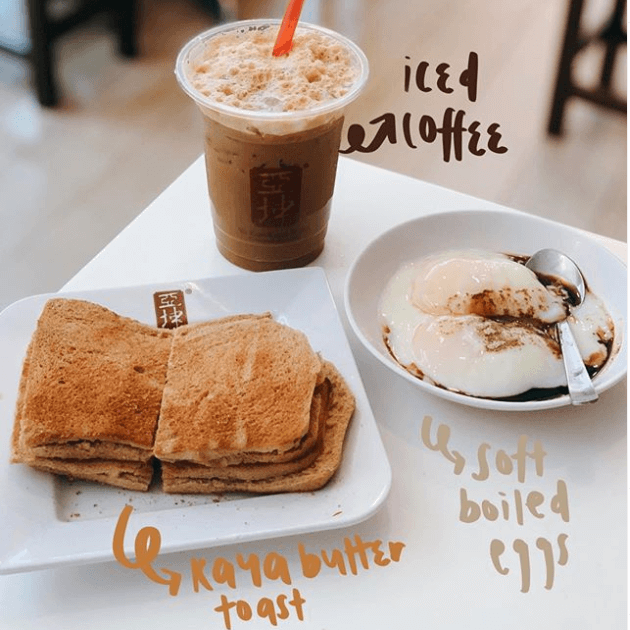 iced
coffee
亞坤
亞坤
soft
boiled
eggs
kaya butter
toast